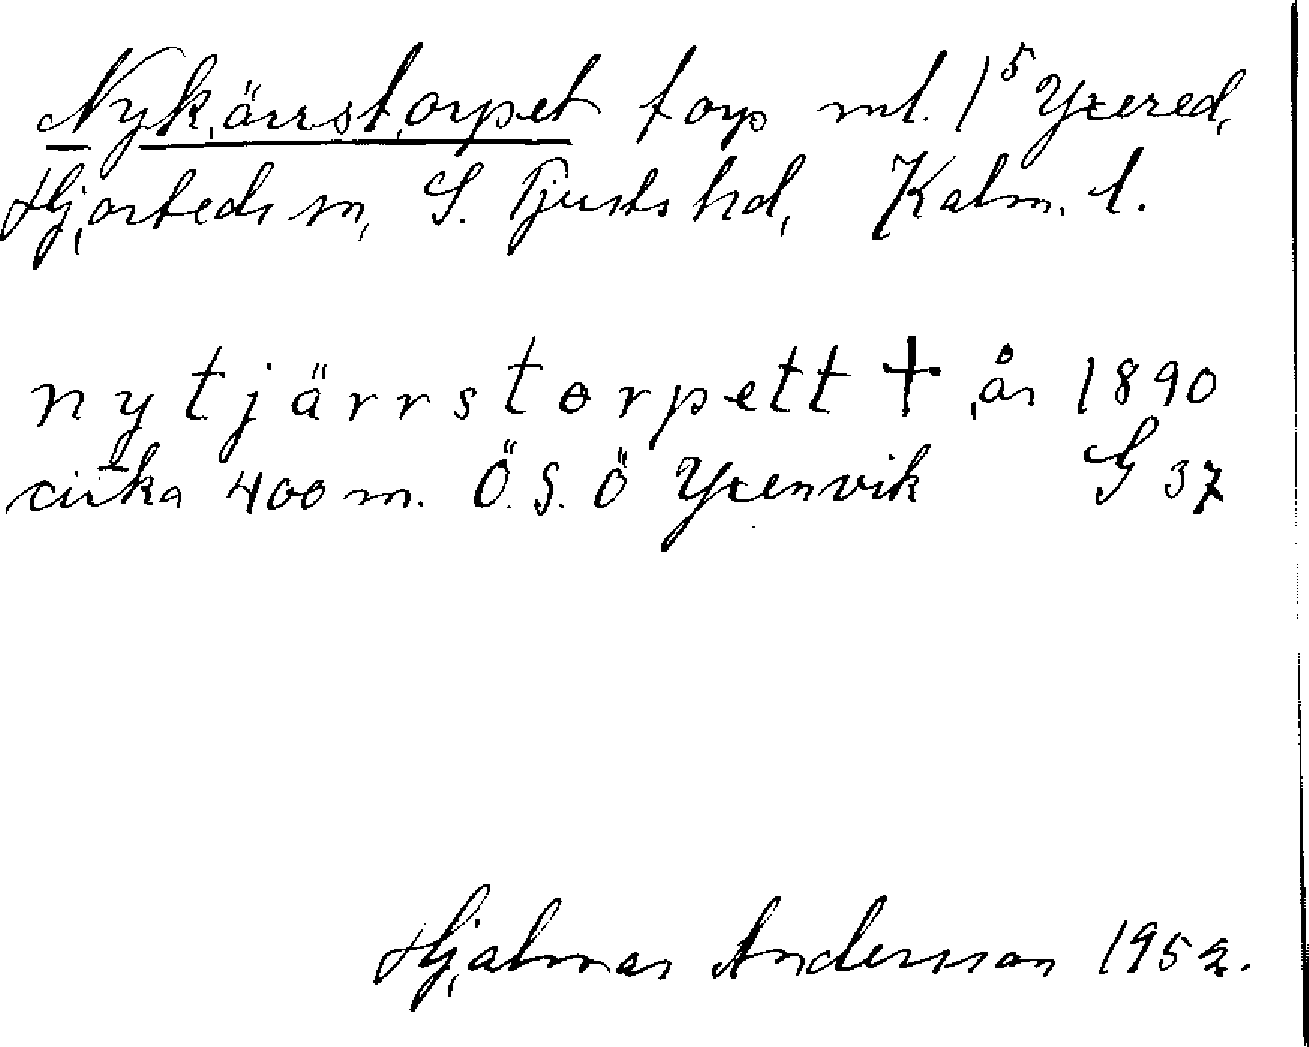 Nykärrstorpet torp ml. 1⁵ Yxered,
Hjorteds sn, S. Tjusts hd, Kalm. l.
nytjärrstorpett † år 1890
cirka 400 m. Ö.S.Ö Yxenvik G 37
Hjalmar Andersson 1952.